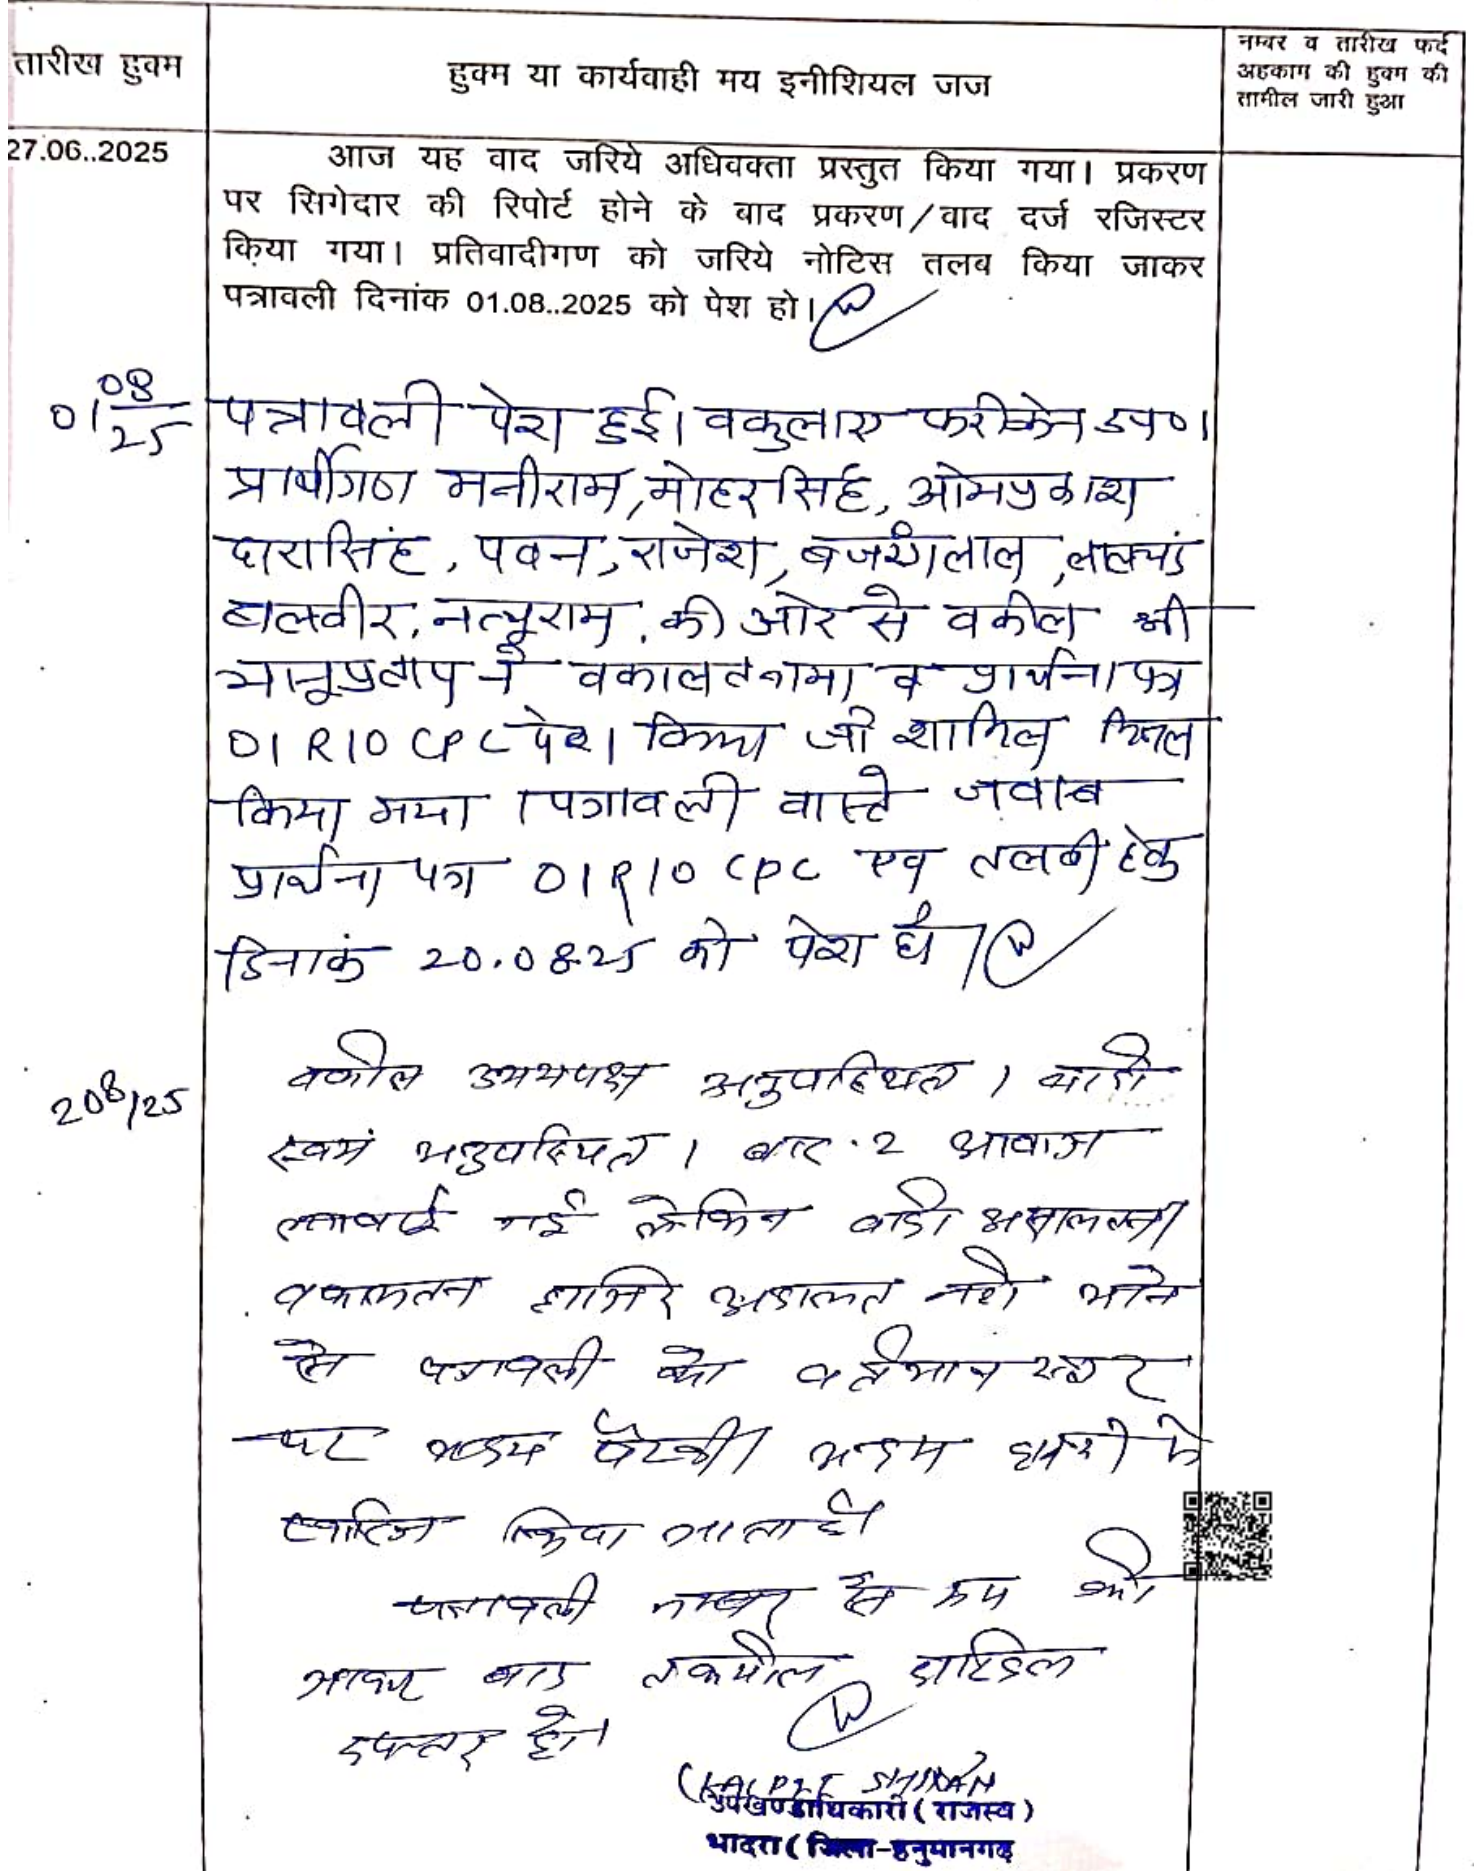 तारीख हुक्म
हुक्म या कार्यवाही मय इनीशियल जज
नम्बर व तारीख फर्द
अहकाम की हुक्म की
तामील जारी हुआ
27.06..2025
आज यह वाद जरिये अधिवक्ता प्रस्तुत किया गया। प्रकरण
पर सिगेदार की रिपोर्ट होने के बाद प्रकरण/वाद दर्ज रजिस्टर
किया गया। प्रतिवादीगण को जरिये नोटिस तलब किया जाकर
पत्रावली दिनांक 01.08..2025 को पेश हो।
01 08/25
पत्रावली पेश हुई। वकुलाए फरीकेन उप०।
प्रार्थीगण मनीराम, मोहरसिंह, ओमप्रकाश
दारासिंह, पवन, राजेश, बजरंगलाल, लालचंद
बालवीर, नत्थूराम, की ओर से वकील श्री
भानूप्रताप ने वकालतनामा व प्रार्थना पत्र
01 R10 CPC पेश किया जो शामिल मिसल
किया गया। पत्रावली वास्ते जवाब
प्रार्थना पत्र 01R10 CPC एव तलबी हेतु
दिनाकं 20.08.25 को पेश हो।
20 8/25
वकील उभयपक्ष अनुपस्थित। वादी
स्वयं अनुपस्थित। बार-2 आवाज
लगवाई गई लेकिन वादी असालतन/
वकालतन हाजिर अदालत नहीं आने
से पत्रावली को वर्तमान स्तर
पर अदम पैरवी/ अदम हाजरी में
खारिज किया जाता है।
पत्रावली नम्बर से कम की
जाकर बाद तकमील दाखिल
दफ्तर हो।
उपखण्डाधिकारी (राजस्व)
भादरा (जिला-हनुमानगढ़